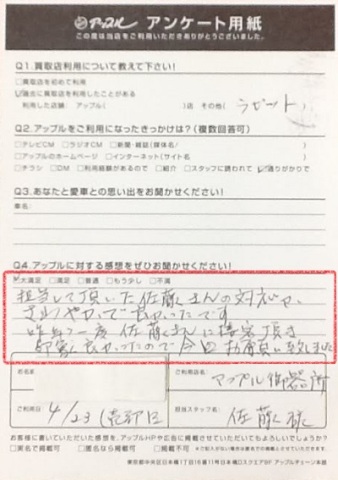 アップル アンケート用紙
この度は当店をご利用いただきありがとうございました。
Q1.買取店利用について教えて下さい!
□買取店を初めて利用
☑過去に買取店を利用したことがある
利用した店舗: アップル( )店 その他( ラビット )
Q2.アップルをご利用になったきっかけは?(複数回答可)
□テレビCM □ラジオCM □新聞・雑誌(媒体名/ )
□アップルのホームページ □インターネット(サイト名 )
□チラシ □DM □利用経験があるので □紹介 □スタッフに誘われて ☑通りがかりで
Q3.あなたと愛車との思い出をお聞かせください!
車名:
Q4.アップルに対する感想をぜひお聞かせください!
☑大満足 □満足 □普通 □もう少し □不満
担当して頂いた佐藤さんの対応が、
さわやかで良かったです
一度 佐藤さんに接客頂き
印象 良かったので今回 お願い致しました
お名前
ご利用店名:
アップル 所
ご利用日
4/23
担当スタッフ名:
佐藤 様
お客様に書いていただいた感想を、アップルHPや広告に掲載させていただいてもよろしいでしょうか?
□実名で掲載可 □匿名なら掲載可 □掲載不可
東京都中央区日本橋1丁目16番11号日本橋Dスクエア8F アップルチェーン本部